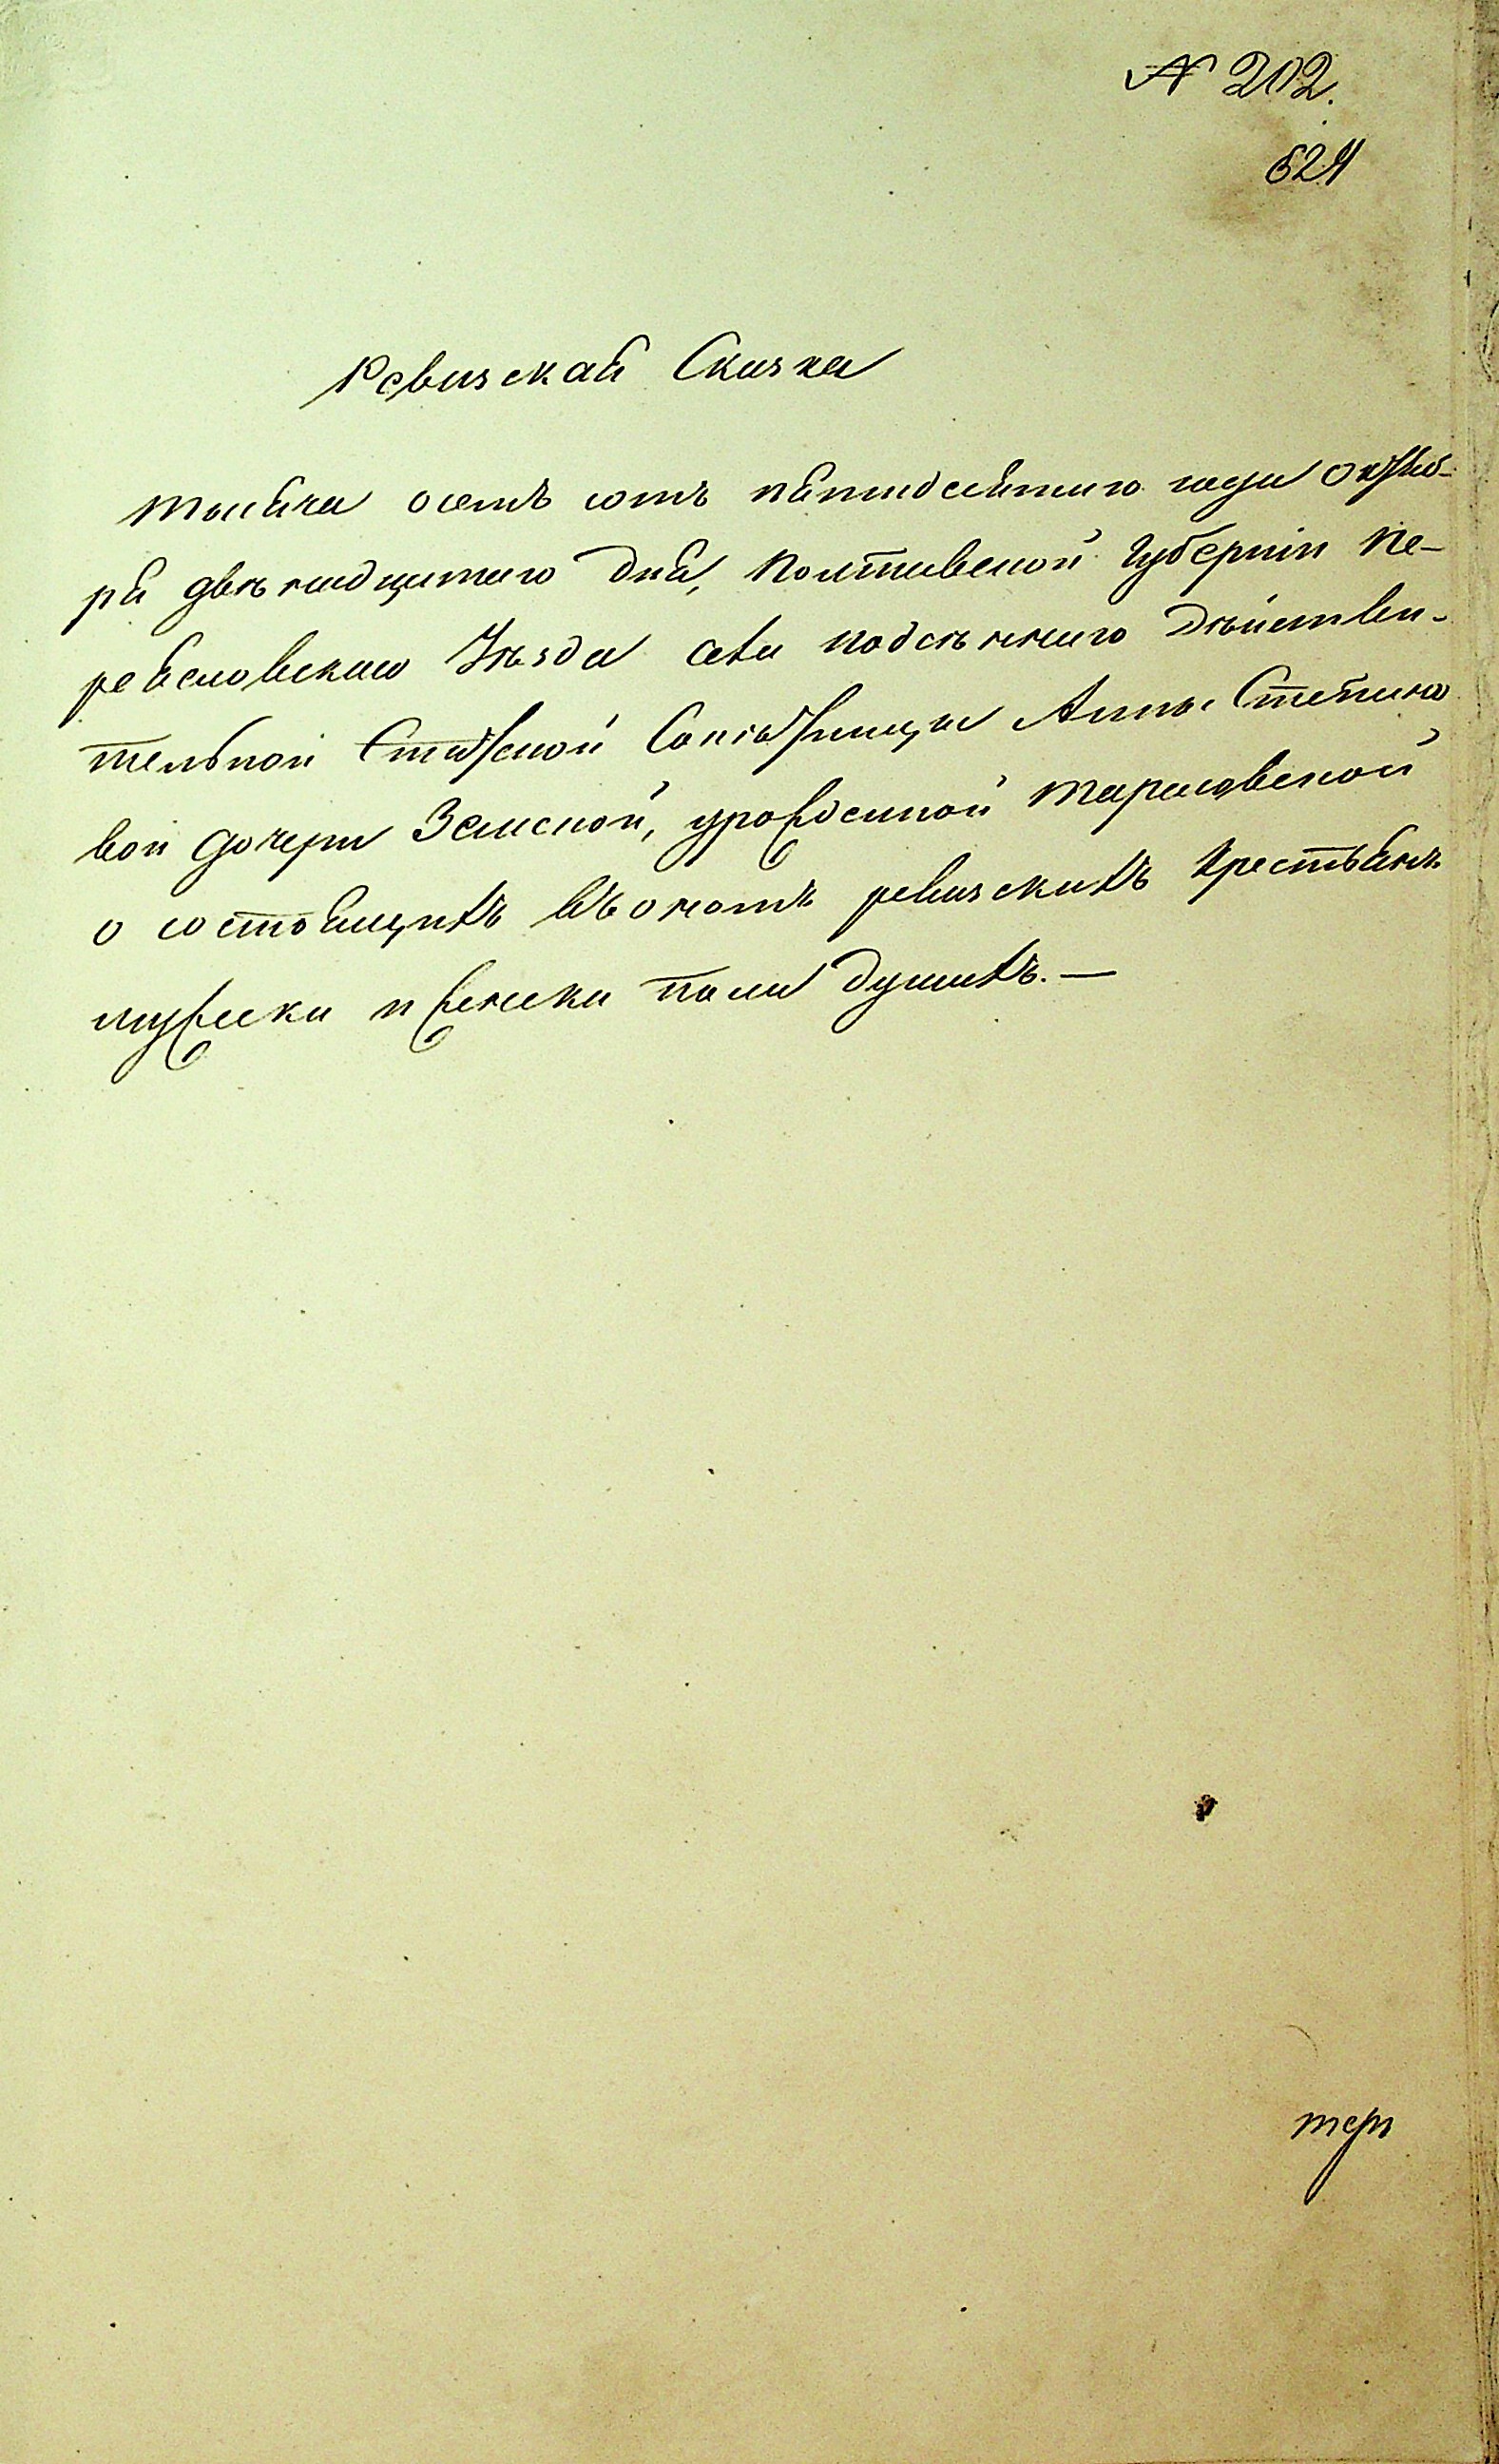 № 202.
624
Ревизская Сказка
тысяча осемъ сотъ пятидесятого года октяб-
ря двенадцатого дня, Полтавской Губерніи Пе-
реяславскаго Уѣзда села Подсѣннаго Дѣйстви-
тельной Статской Совѣтницы Анны Степано
вой дочери Земской, урожденной
о состоящихъ въ ономъ ревизскихъ крестьянъ
мужеска и женска пола душахъ. —